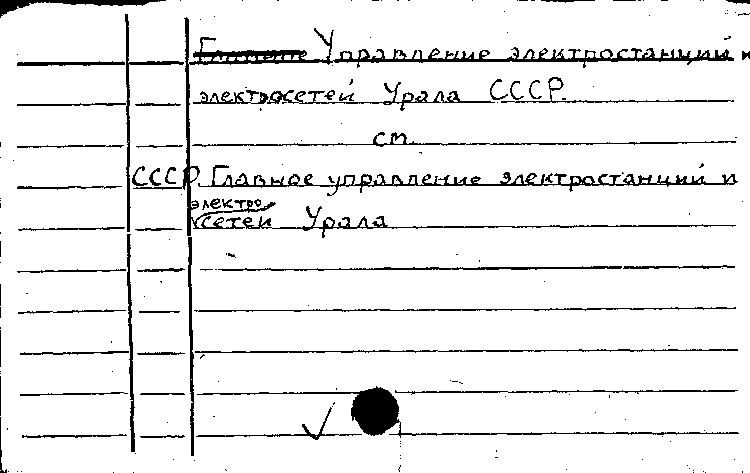 Управление электростанций и
электросетей Урала СССР.
см.
СССР. Главное управление электростанций и
электро
сетей Урала